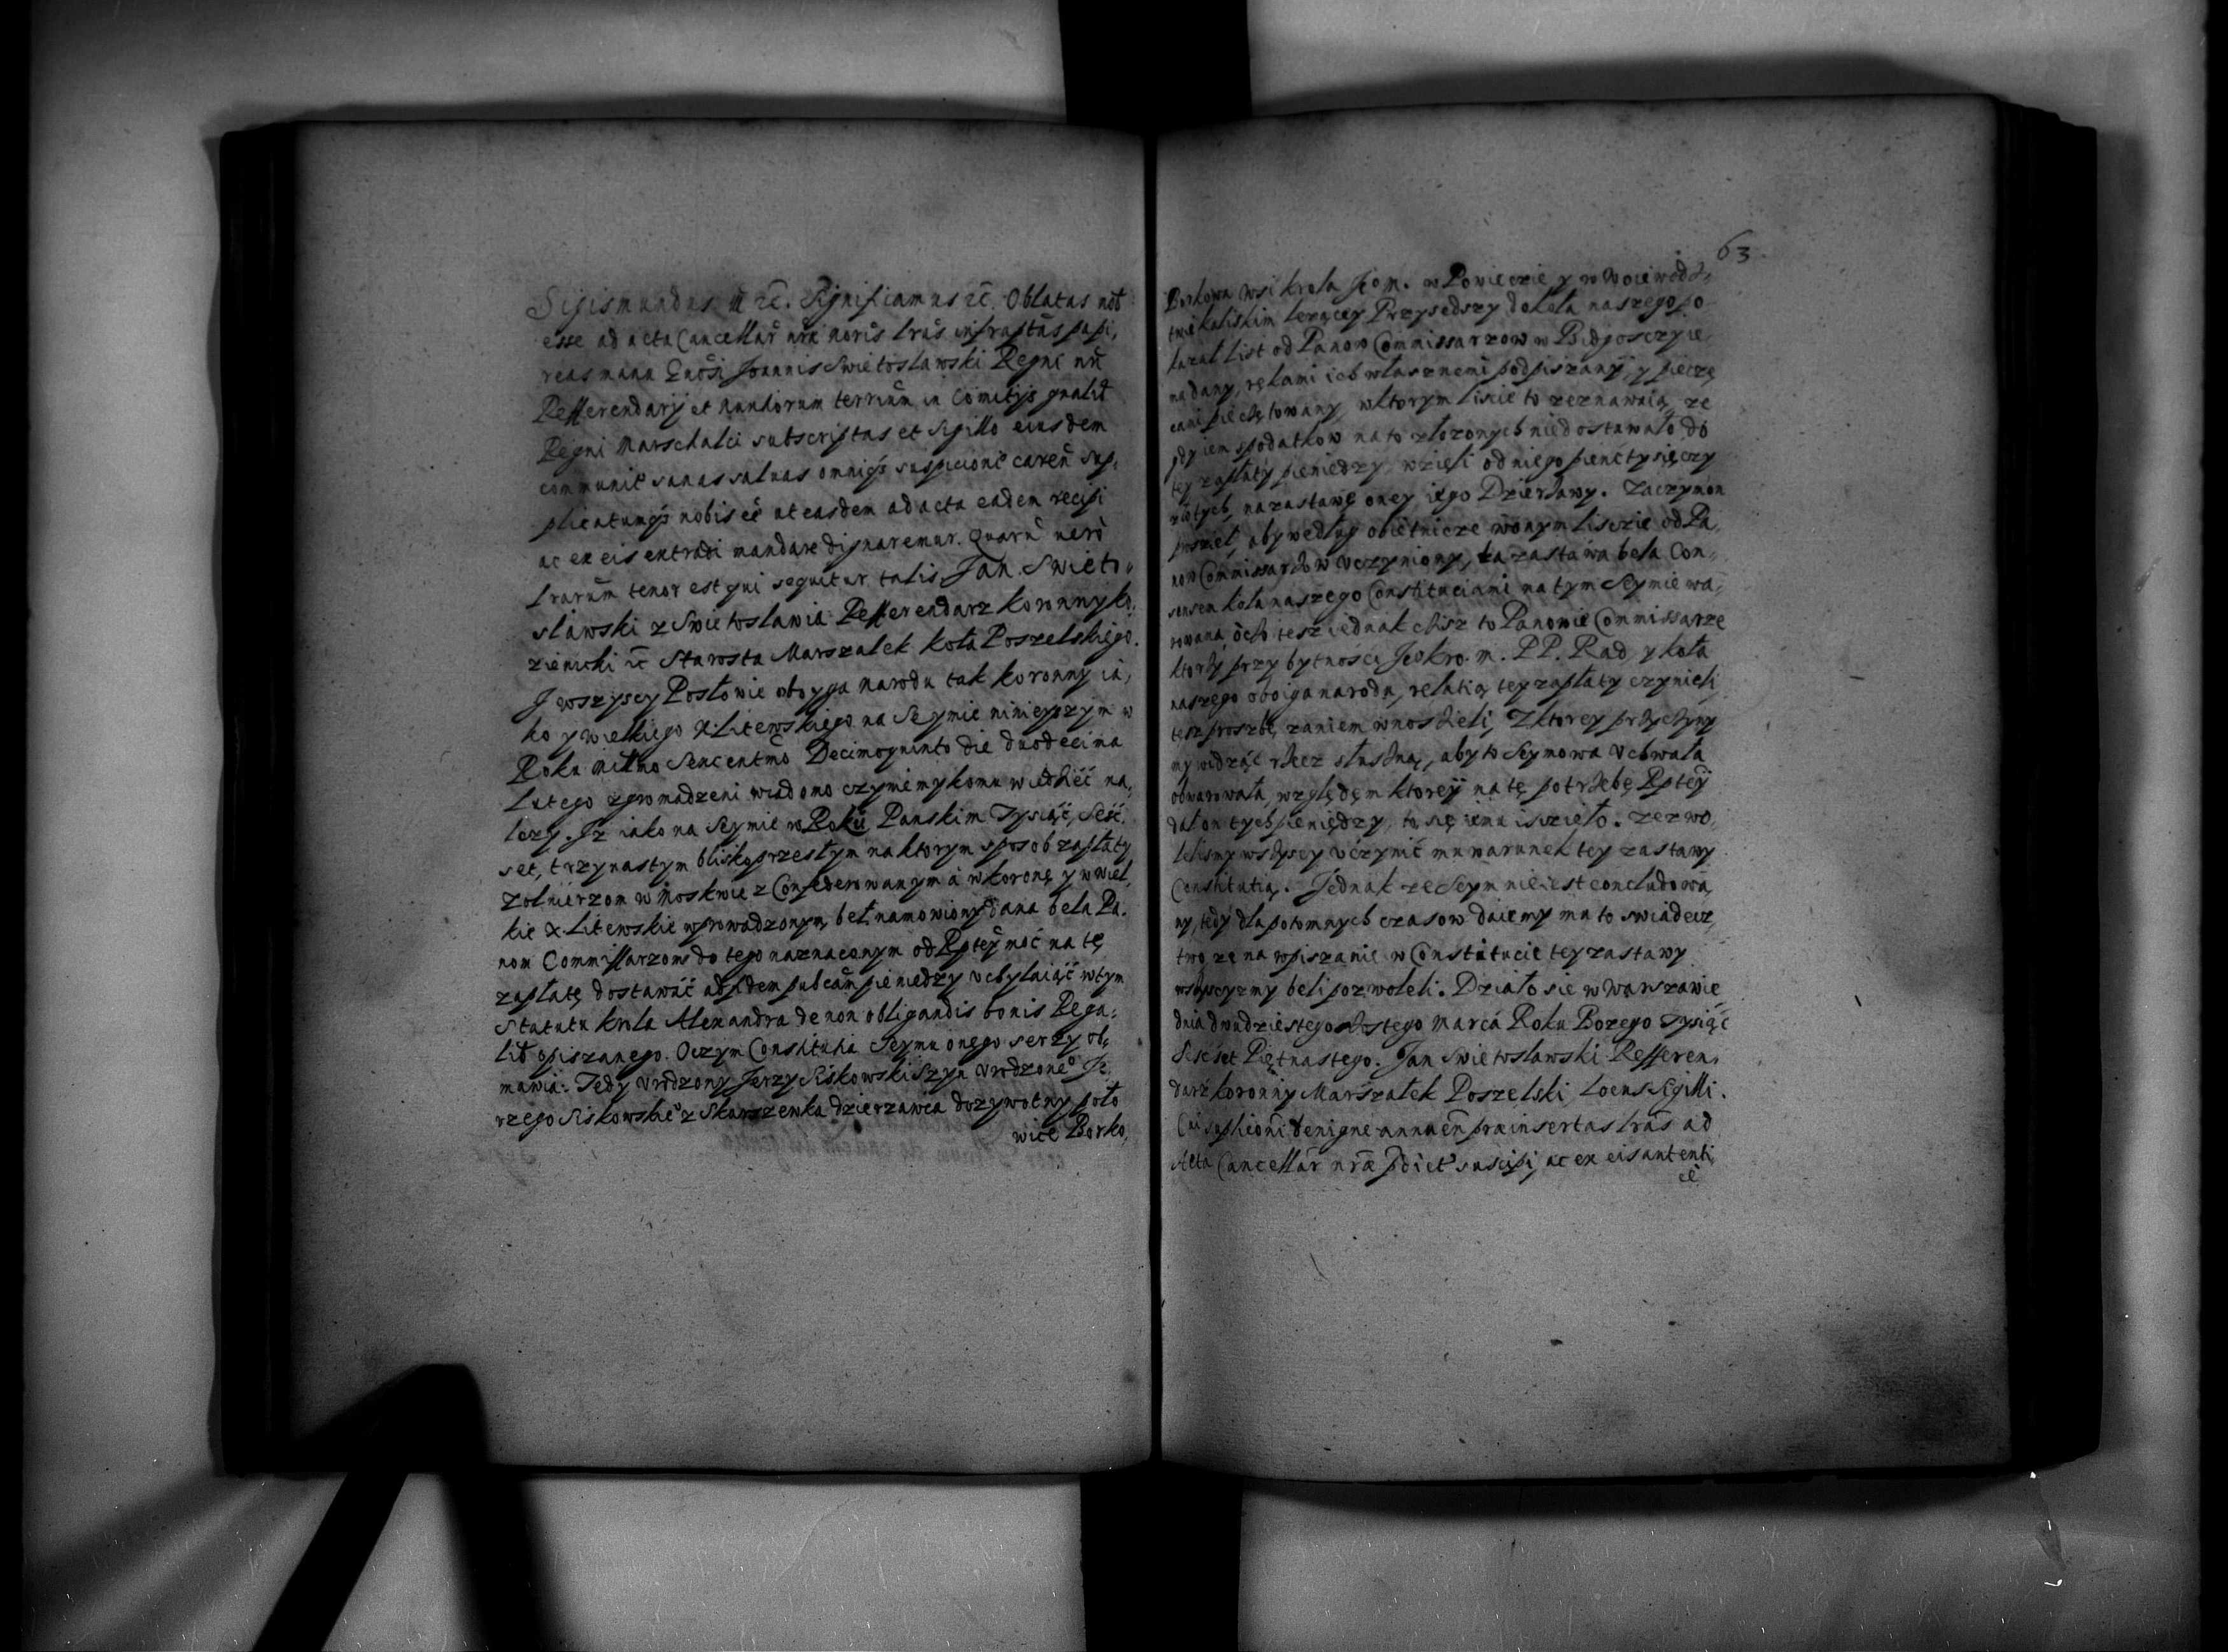 Sigismundus etc. Significamus etc. Oblatas nob
esse ad acta Cancellar nrae noris lras infraptas papi,
reas manu Gnosi Joannis Swietoslawski Regni nri
Refferendarij et Nuntiorum terrium in Comitijs gnalib
Regni Marschalci subscriptas et sigillo eiusdem
communit sanas saluas omniq3 suspicione caren sup,
plicatumq3 nobis ee ut easdem ad acta eadem recipi
ac ex eis extradi mandare dignaremur. Quaru vero
lrarum tenor est qui sequitur talis Jan Swieto,
sławski z Swietosławia Refferendarz koronny ko,
zienicki etc Starosta Marszałek koła Poszelskiego.
J wszyscy Posłowie oboyga narodu tak koronny ia,
ko y wielkiego X Litewskiego na Seymie ninieyszym w
Roku Millmo Sexcentmo Decimoquinto die duodecima
Lutego zgromadzeni wiadomo czynimy komu wiedzieć na,
lezy. Jz iako na Seymie w Roku Panskim Tysiąć, Seść,
set, trzynastym blisko przeszłym na ktorym sposob zapłaty
Zołnierzom w Moskwie z Confederowanym a w koronę y w wiel,
kie X. Litewskie wprowadzonym, beł namowiony dana beła Pa.
nom Commissarzom do tego naznaconym od Rptey moć na tę
zapłatę dostawáć ad fidem pubcam pieniedzy vchylaiąć w tym
Statutu krola Alexandra de non obligandis bonis Rega,
lib opiszanego. O czym Constitutia Seymu onego szerzy ob,
mawia. Tedy vrodzony Jerzy Siskowski Szyn vrodzone° Je
rzego Siskowskie° z Skarszewka dzierzawca dozywotny poło
wice Borko,
63
Borkowa wsi krola Jeo M. w Powieczie y w Woiewodz,
twie kaliskim lezącey Przyszedszy do koła naszego po
kazał List od Panow Commissarzow w Bidgosczy ie
nadany, rękami ich własznemi podpiszany, y pieczę
ciami pieczętowany, w ktorym liscie to zeznawaią, ze
gdy iem s podatkow na to złozonych nie dostawało do
tey zapłaty pieniedzy, wzięli od niego pienć tysięczy
złotych, na zastawę oney iego Dzierzawy. Zaczym on
prosieł, aby według obietnicze w onym liscie od Pa,
now Commissarzow vczyniony, ta zastawa beła Con,
sensem koła naszego Constituciami na tym Seymie wa,
rowana, o cło tesz iednak cisz to Panowie Commissarze
ktorzy przy bytnosci Jeo kro. m. PP. Rad, y koła
naszego oboiga narodu, relatią tey zapłaty czynieli
tesz proszbę zaniem wnoszieli, Z ktorey przyczyny
my widząć rzecz słuszną, aby to Seymowa Vchwała
obwarowała, względęm ktorey na tę potrzebę Rptey
dał on tych pieniędzy, to się iemu iscieło. zezwo,
lelismy wszyscy vczynić mu warunek tey zastawy
Constitutią. Jednak ze Seym nie iest concludowa,
ny, tedy dla potomnych czasow daiemy mu to swiadecz,
two ze na wpiszanie w Constitucie tey zastawy
wszyscyzmy beli pozwoleli. Działo sie w Warszawie
dnia dwudziestego szostego Marca Roku Bozego Tysiąć
Seśćset Piętnastego. Jan Swietosławski Refferen,
darz koronny Marszałek Poszelski, Locus Sigilli.
Cui supliconi benigne annuen praeinsertas lras ad
Acta Cancellar nrae pdict suscipi, ac ex eis autenti
ce